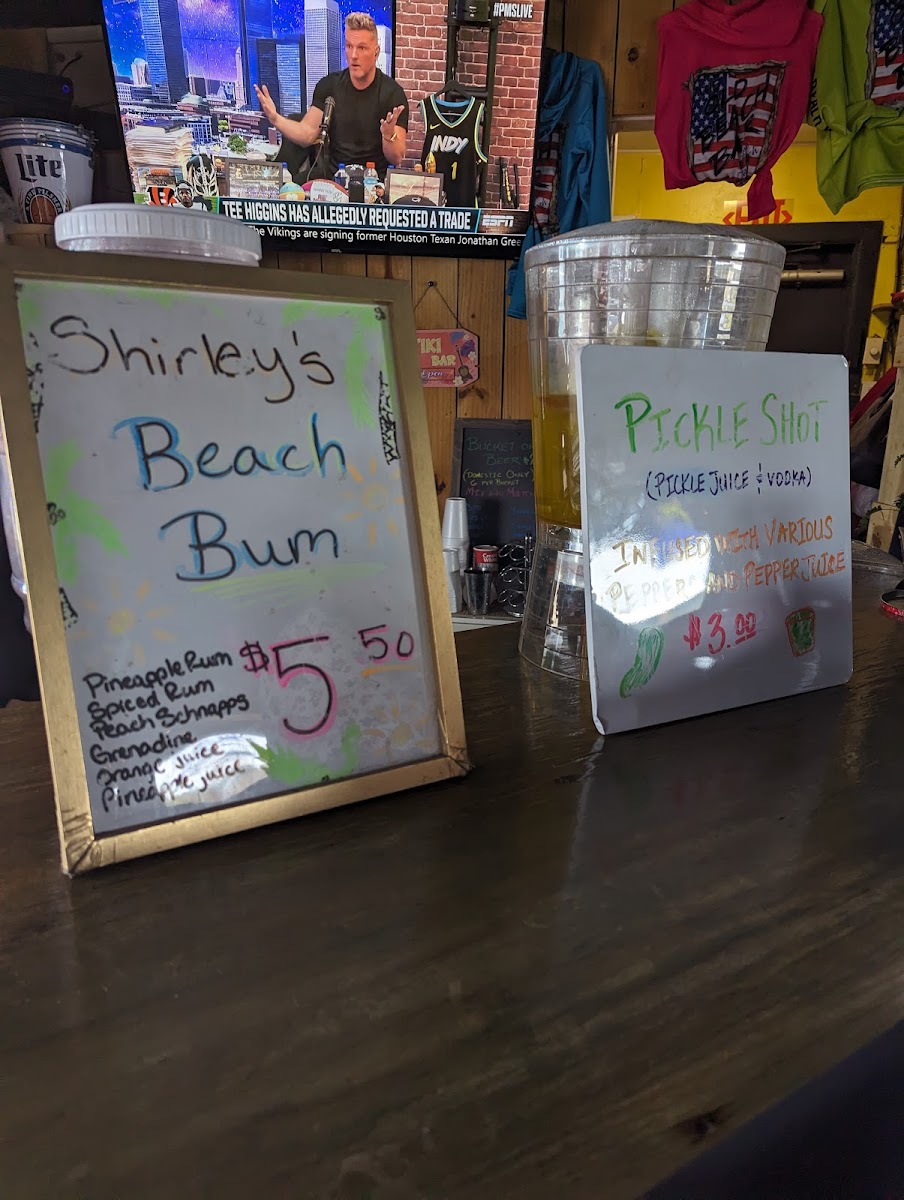 #PMSLIVE
INDY
1
TEE HIGGINS HAS ALLEGEDLY REQUESTED A TRADE
ESPN
The Vikings are signing former Houston Texan Jonathan Gree
Lite
Shirley's
Beach
Bum
$5 50
Pineapple Rum
Spiced Rum
Peach Schnapps
Grenadine
Orange juice
Pineapple juice
TIKI
BAR
Open
BUCKET OF
BEER
(DOMESTIC ONLY)
6 PER BUCKET
MIX AND MATCH
PICKLE SHOT
(PICKLE JUICE & VODKA)
INFUSED WITH VARIOUS
PEPPERS AND PEPPER JUICE
$3.00
EXIT